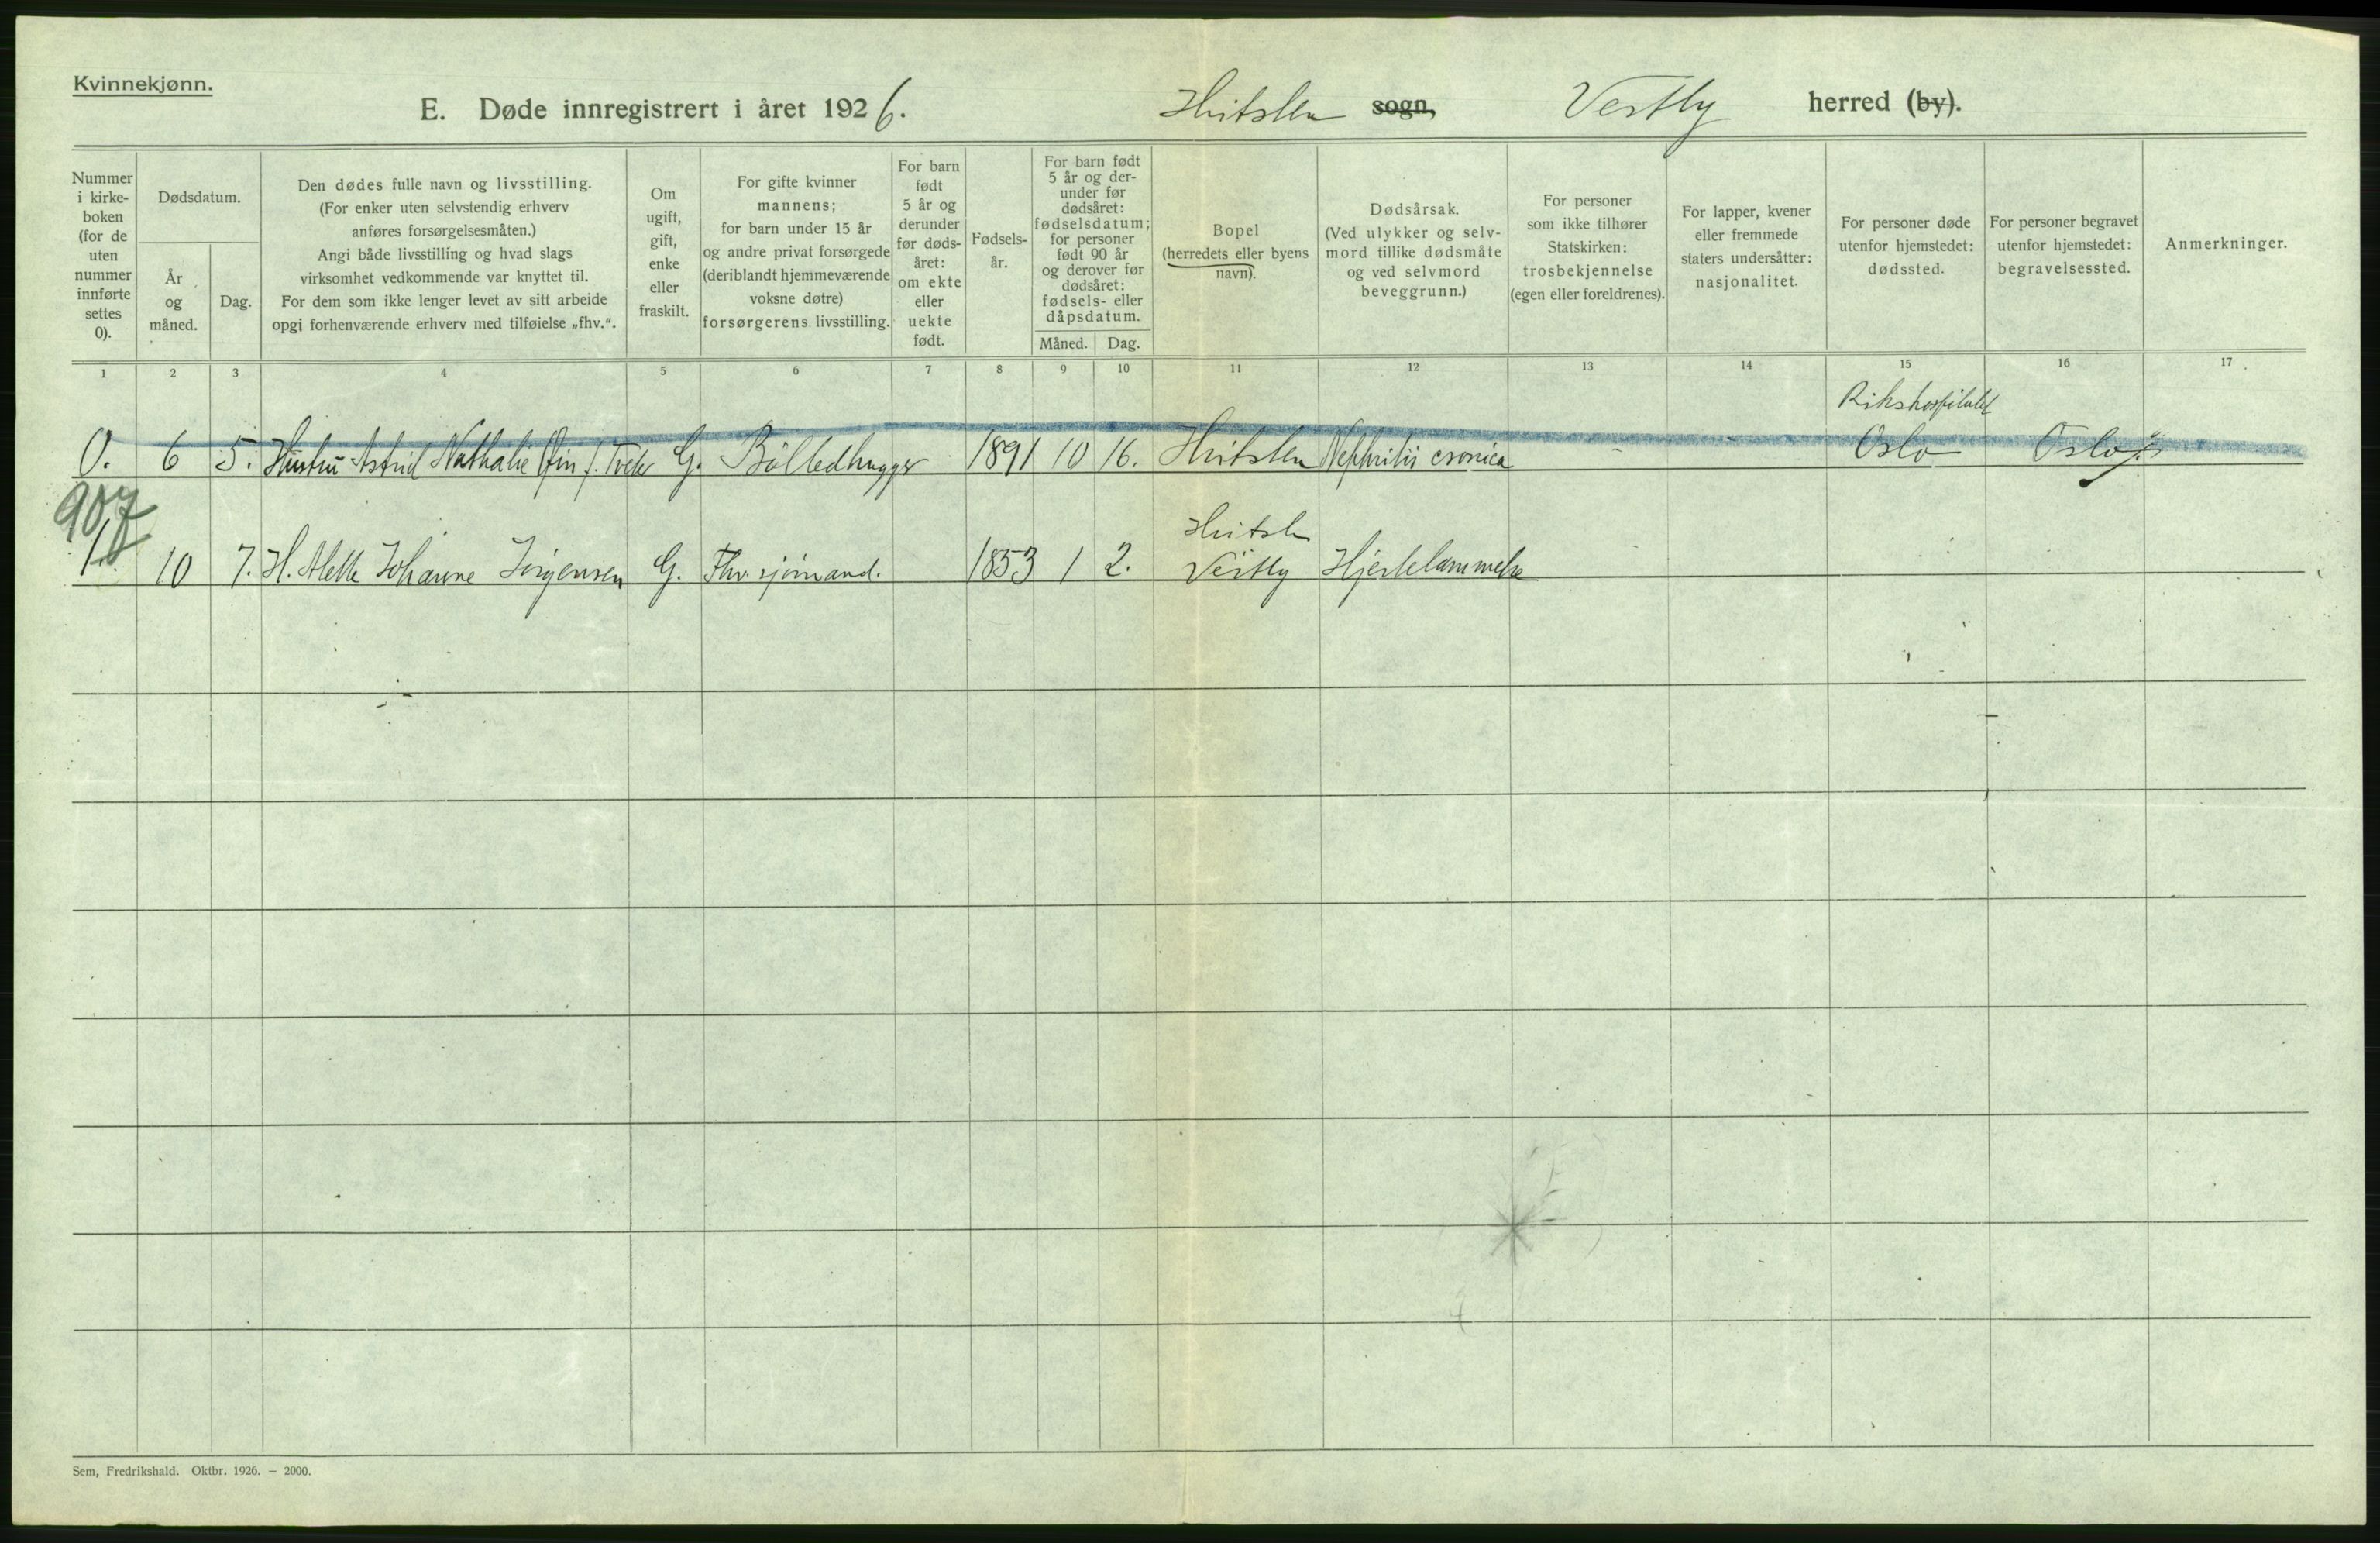 Kvinnekjønn.
E. Døde innregistrert i året 1926. Hvitsten sogn, Vestby herred (by).
Nummer i kirke-boken (for de uten nummer innførte settes 0).
Dødsdatum.
År og måned.
Dag.
Den dødes fulle navn og livsstilling.
(For enker uten selvstendig erhverv
anføres forsørgelsesmåten.)
Angi både livsstilling og hvad slags
virksomhet vedkommende var knyttet til.
For dem som ikke lenger levet av sitt arbeide
opgi forhenværende erhverv med tilføielse „fhv.“.
Om ugift, gift, enke eller fraskilt.
For gifte kvinner
mannens;
for barn under 15 år
og andre privat forsørgede
(deriblandt hjemmeværende
voksne døtre)
forsørgerens livsstilling.
For barn
født
5 år og
derunder
før døds-
året:
om ekte
eller
uekte
født.
Fødsels-
år.
For barn født
5 år og der-
under før
dødsåret:
fødselsdatum;
for personer
født 90 år
og derover før
dødsåret:
fødsels- eller
dåpsdatum.
Måned. Dag.
Bopel
(herredets eller byens
navn).
Dødsårsak.
(Ved ulykker og selv-
mord tillike dødsmåte
og ved selvmord
beveggrunn.)
For personer
som ikke tilhører
Statskirken:
trosbekjennelse
(egen eller foreldrenes).
For lapper, kvener
eller fremmede
staters undersåtter:
nasjonalitet.
For personer døde
utenfor hjemstedet:
dødssted.
For personer begravet
utenfor hjemstedet:
begravelsessted.
Anmerkninger.
1 2 3 4 5 6 7 8 9 10 11 12 13 14 15 16 17
Rikshospitalet
0. 6 5. Hustru Astrid Nathalie f. Tvete G. Billedhugger 1891 10 16. Hvitsten Nephritis cronica Oslo Oslo
907
Hvitsten
1. 10 7. H. Alette Johanne Jørgensen G. Fhv. sjømand. 1853 1 2. Vestby Hjertelammelse
Sem, Fredrikshald. Oktbr. 1926. – 2000.